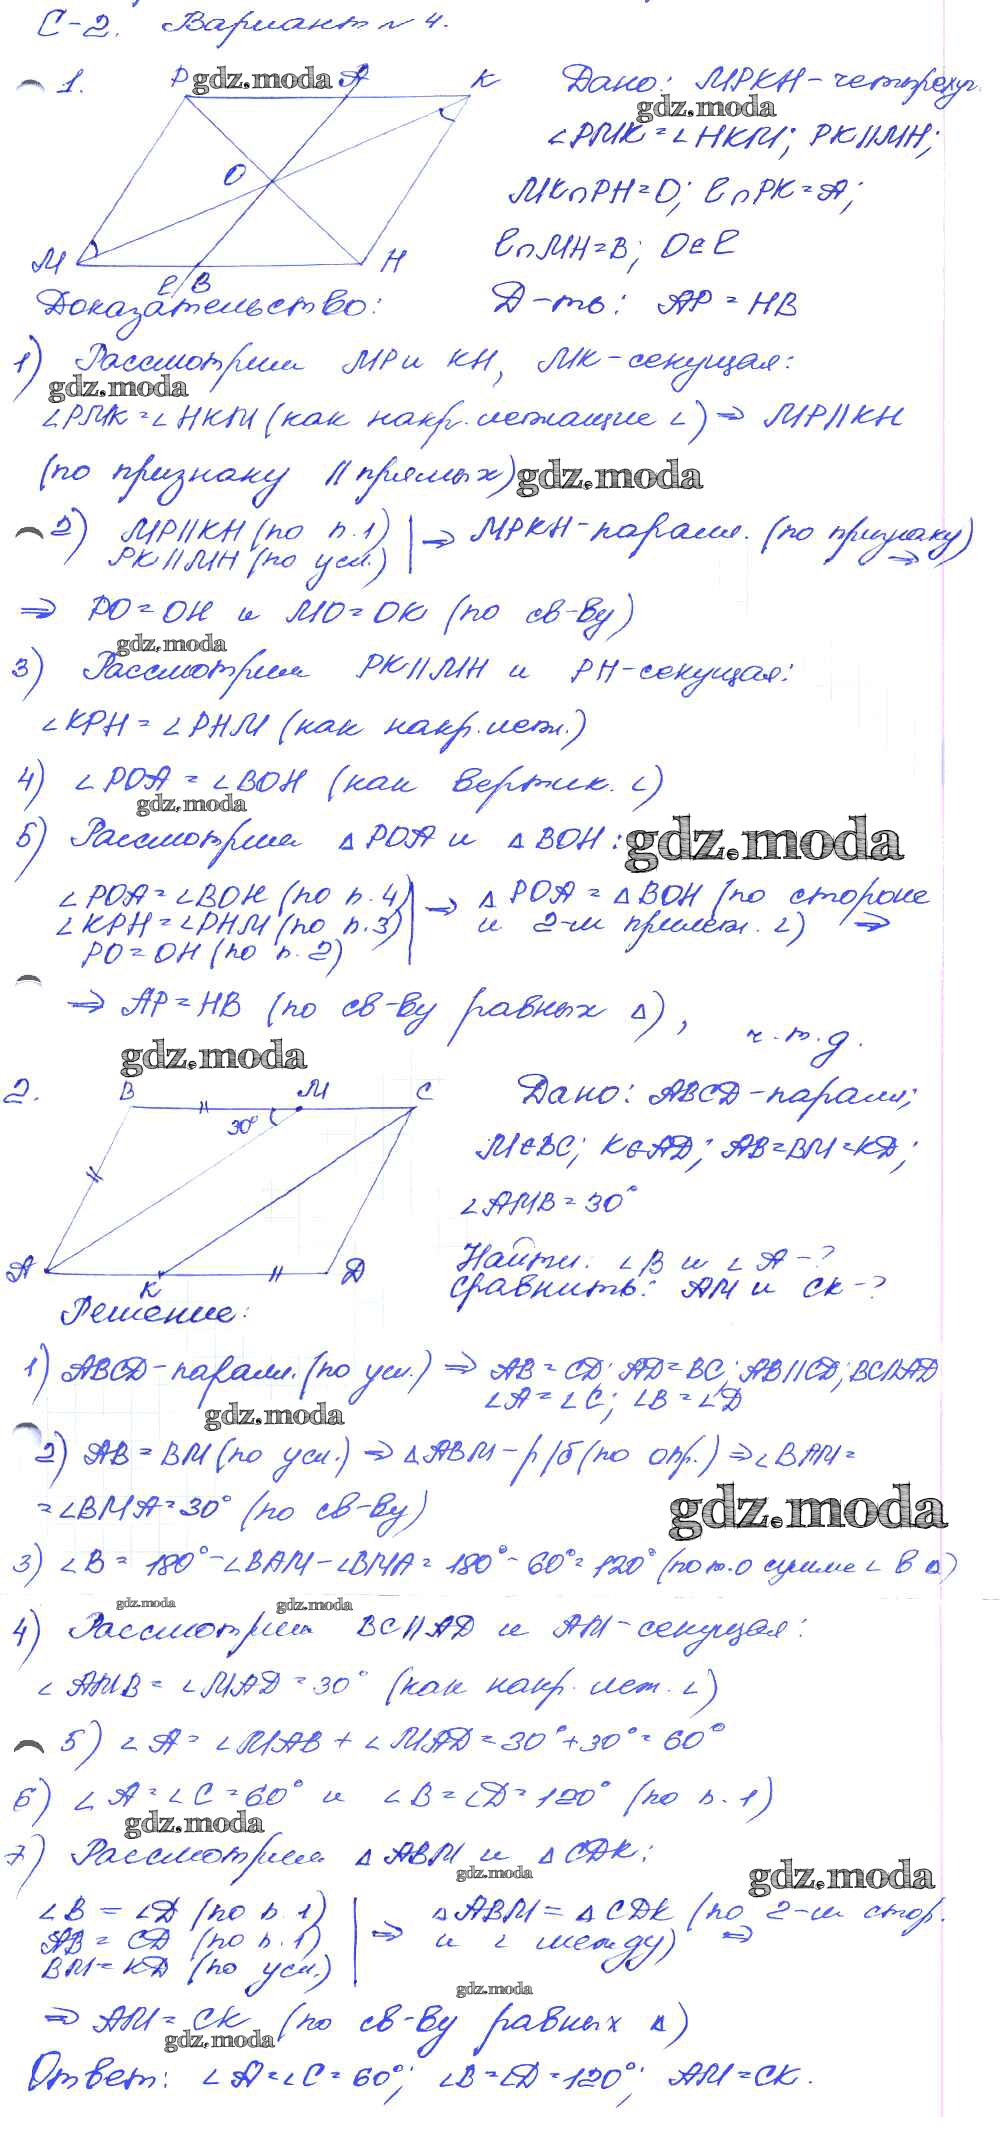 С-2. Вариант № 4.
1.
P
gdz.moda
A
K
O
M
H
ℓ
B
Дано: MPKH-четырехуг.
gdz.moda
∠PMK=∠HKM; PK||MH;
MK∩PH=O; ℓ∩PK=A;
ℓ∩MH=B; O∈ℓ
Д-ть: AP=HB
Доказательство:
1) Рассмотрим MP и KH, MK-секущая:
gdz.moda
∠PMK=∠HKM (как накр. лежащие ∠) ⇒ MP||KH
(по признаку || прямых) gdz.moda
2) MP||KH (по п.1)
PK||MH (по усл.)
⇒ MPKH-паралл. (по признаку) ⇒
⇒ PO=OH и MO=OK (по св-ву)
gdz.moda
3) Рассмотрим PK||MH и PH-секущая:
∠KPH=∠PHM (как накр. леж.)
4) ∠POA=∠BOH (как вертик. ∠)
gdz.moda
5) Рассмотрим △POA и △BOH: gdz.moda
∠POA=∠BOH (по п.4)
∠KPH=∠PHM (по п.3)
PO=OH (по п.2)
⇒ △POA=△BOH (по стороне
и 2-м прилеж. ∠) ⇒
⇒ AP=HB (по св-ву равных △), ч.т.д.
gdz.moda
2.
B
M
C
30°
A
K
D
Дано: ABCD-паралл;
M∈BC; K∈AD; AB=BM=KD;
∠AMB=30°
Найти: ∠B и ∠A-?
Сравнить: AM и CK-?
Решение:
1) ABCD-паралл. (по усл.) ⇒ AB=CD; AD=BC; AB||CD; BC||AD
∠A=∠C; ∠B=∠D
gdz.moda
2) AB=BM (по усл.) ⇒ △ABM-р/б (по опр.) ⇒ ∠BAM=
=∠BMA=30° (по св-ву)
gdz.moda
3) ∠B=180°-∠BAM-∠BMA=180°-60°=120° (по т.о сумме ∠ в △)
gdz.moda
gdz.moda
4) Рассмотрим BC||AD и AM-секущая:
∠AMB=∠MAD=30° (как накр. леж. ∠)
5) ∠A=∠MAB+∠MAD=30°+30°=60°
6) ∠A=∠C=60° и ∠B=∠D=120° (по п.1)
gdz.moda
7) Рассмотрим △ABM и △CDK:
gdz.moda
gdz.moda
∠B=∠D (по п.1)
AB=CD (по п.1)
BM=KD (по усл.)
⇒ △ABM=△CDK (по 2-м стор.
и ∠ между) ⇒
gdz.moda
⇒ AM=CK (по св-ву равных △)
gdz.moda
Ответ: ∠A=∠C=60°; ∠B=∠D=120°; AM=CK.